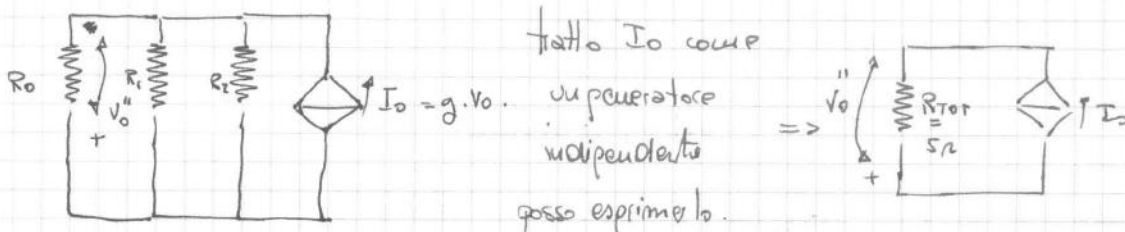 R₀
V₀''
+
R₁
R₂
I₀ = g·V₀.
tratto I₀ come
un generatore
indipendente
posso esprimerlo.
=>
V₀''
+
R_TOT
=
5Ω
I₀